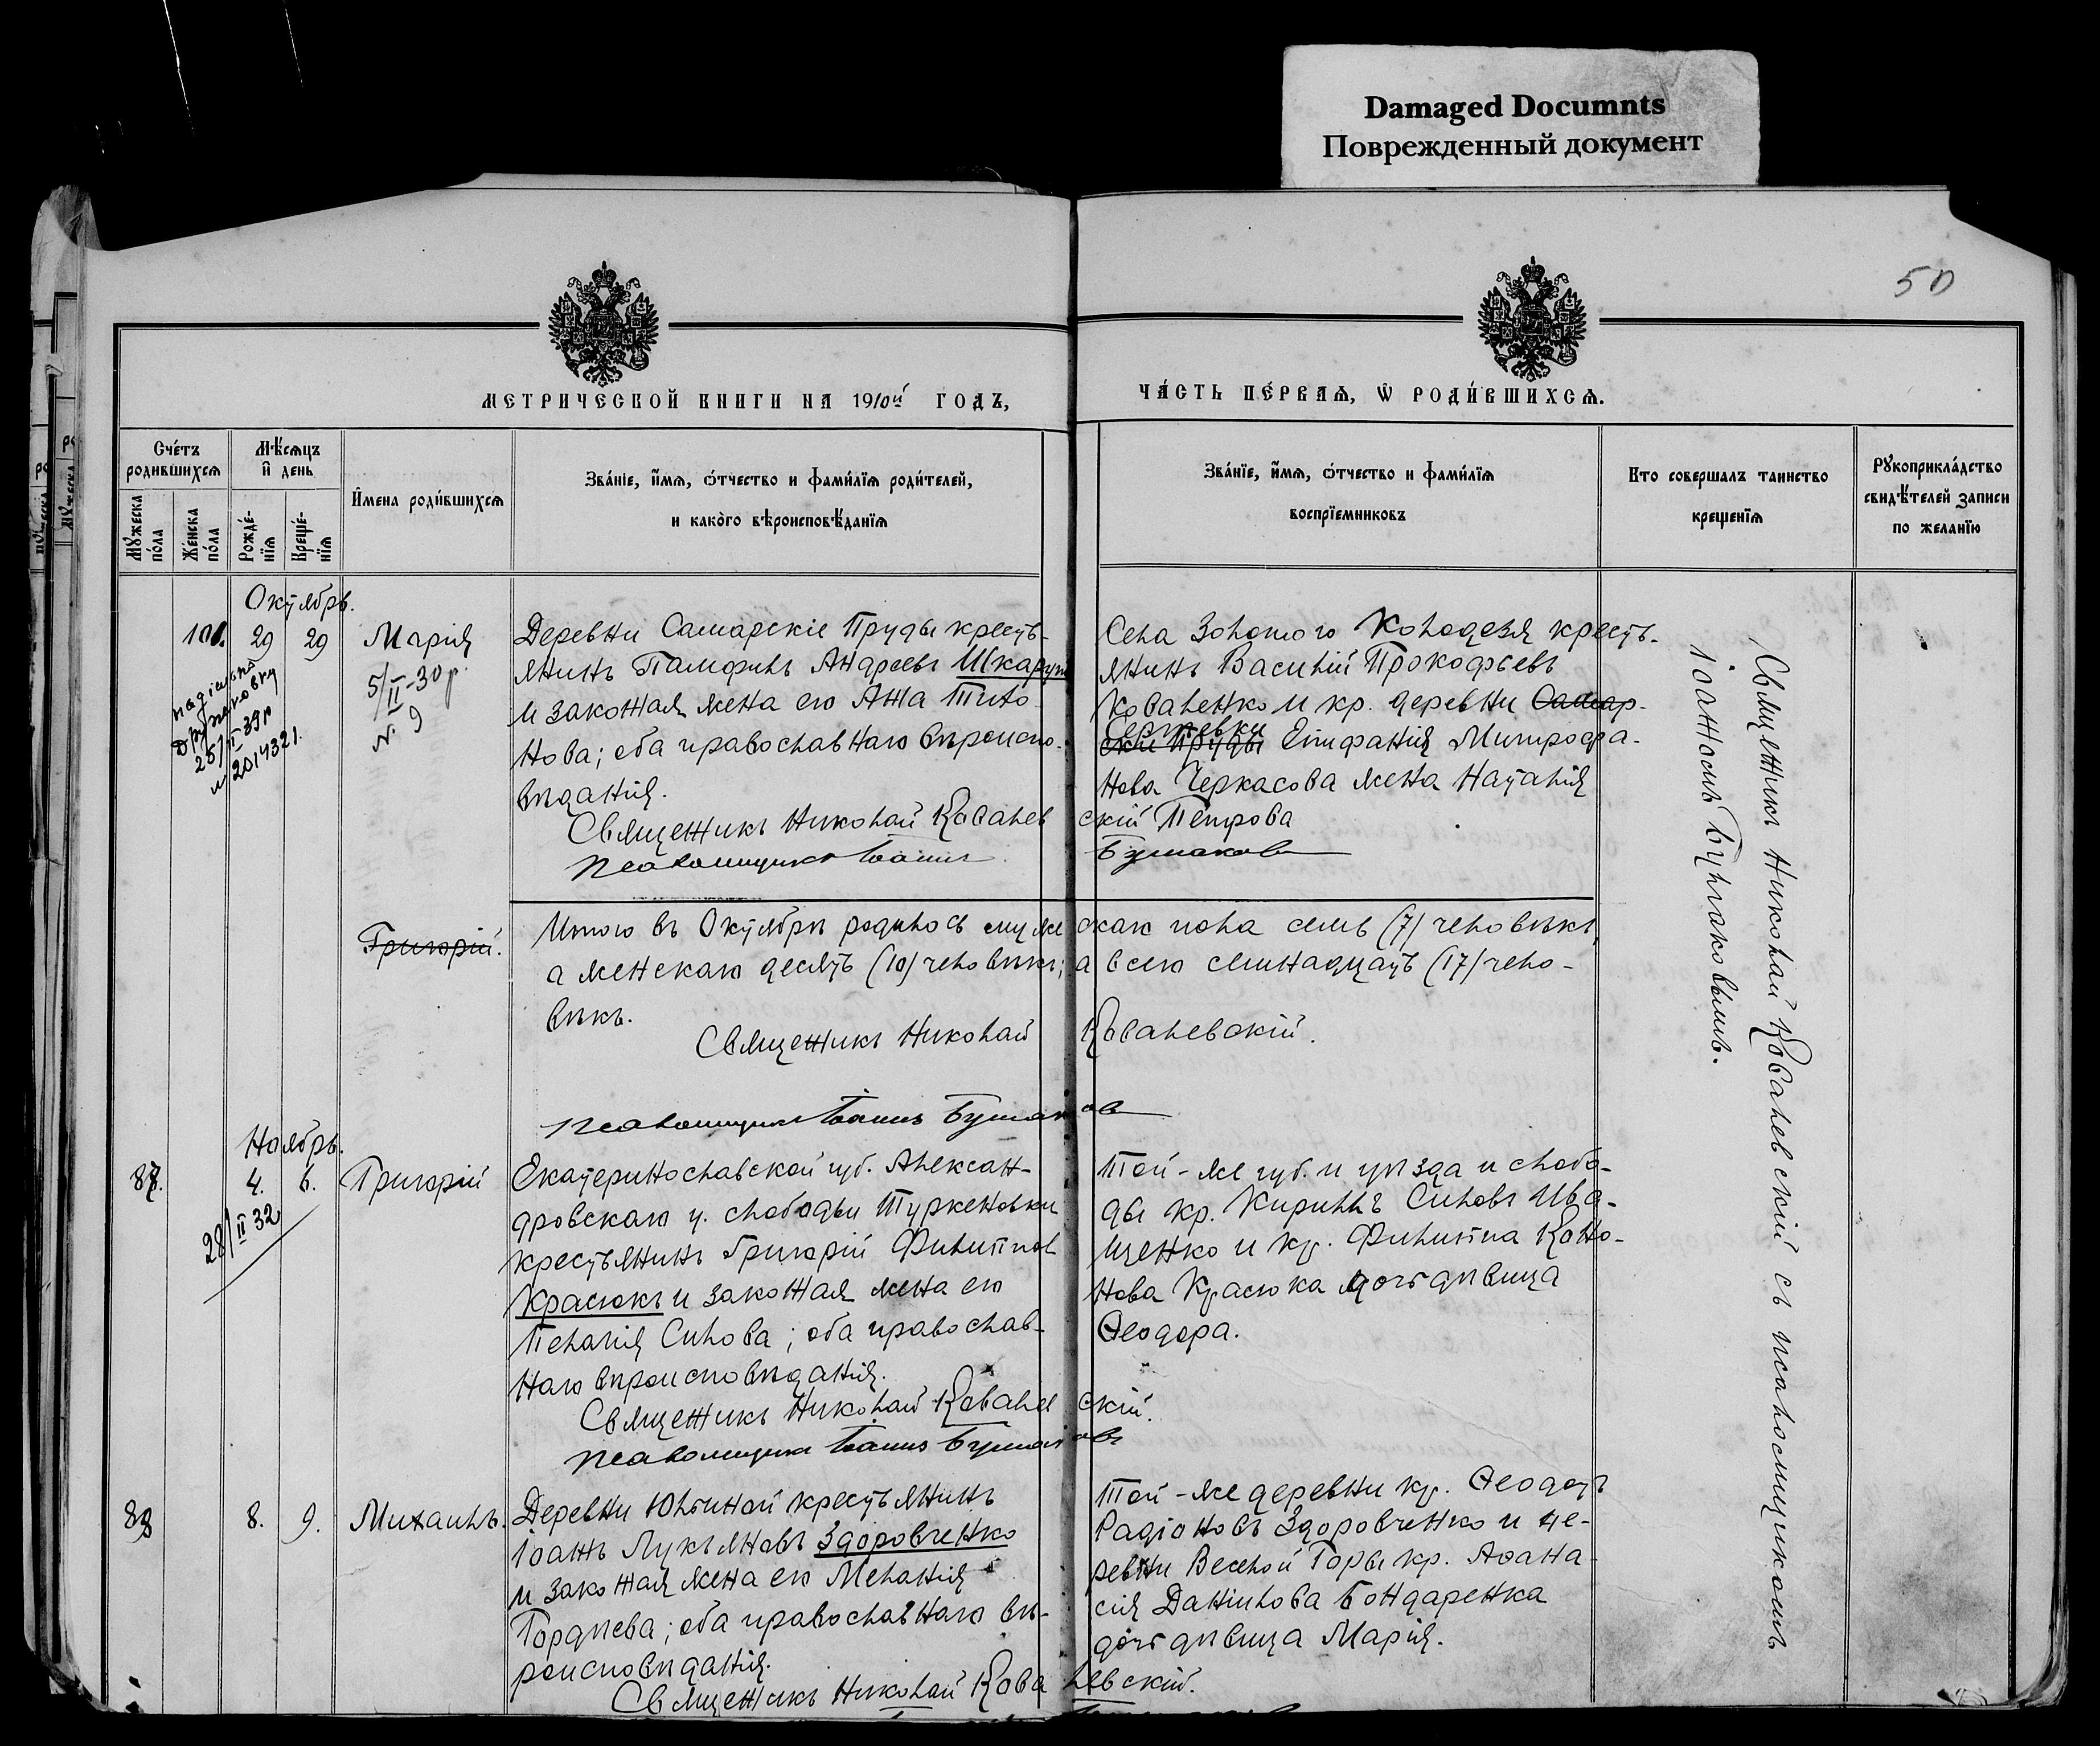 Damaged Documnts
Поврежденный документ
50
МЕТРИЧЕСКОЙ КНИГИ НА 1910й ГОДЪ,
ЧАСТЬ ПЕРВАЯ, Ѡ РОДИВШИХСЯ.
Счетъ родившихся
Мужеска пола
Женска пола
Мѣсяцъ и день
Рожденія
Крещенія
Имена родившихся
Званіе, имя, отчество и фамилія родителей,
и какого вѣроисповѣданія
Званіе, имя, отчество и фамилія
воспріемниковъ
Кто совершалъ таинство
крещенія
Рукоприкладство
свидѣтелей записи
по желанію
Октябрь.
29 29 Марія
5/II-30 р.
N. 9
25/II 39 р
N 2014321.
Деревни Самарскіе Пруды кресть-
янинъ Памфилъ Андреевъ
и законная жена его Анна Тито-
нова; оба православнаго вѣроиспо-
вѣданія.
Священникъ Николай Ковалевскій
Псаломщикъ Іоаннъ
Села Золотого Колодезя кресть-
янинъ Василій Прокофьевъ
Коваленко и кр. деревни Самар-
скіе Пруды Сергѣевки Епифанія Митрофа-
нова Черкасова жена Наталія
Петрова
Григорій.
Итого въ Октябрѣ родилось мужескаго пола семь (7) человѣкъ,
а женскаго десять (10) человѣкъ; а всего семнадцать (17) чело-
вѣкъ.
Священникъ Николай Ковалевскій.
Псаломщикъ Іоаннъ
Ноябрь.
4. 6. Григорій
28/II 32
Екатеринославской губ. Алексан-
дровскаго у. слободы Туркеновки
крестьянинъ Григорій Филипповъ
Красюкъ и законная жена его
Пелагія Силова; оба православ-
наго вѣроисповѣданія.
Священникъ Николай Ковалевскій.
Псаломщикъ Іоаннъ
Той-же губ. и уѣзда и слобо-
ды кр. Кириллъ Силовъ Ива-
щенко и кр. Филиппа Коно-
нова Красюка дочь дѣвица
Ѳеодора.
8. 9. Михаилъ.
Деревни Юльиной крестьянинъ
Іоаннъ Лукьяновъ Здоровченко
и законная жена его Меланія
Гордѣева; оба православнаго вѣ-
роисповѣданія.
Священникъ Николай Ковалевскій.
Той-же деревни кр. Ѳеодоръ
Радіоновъ Здоровченко и де-
ревни Веселой Горы кр. Аѳана-
сія Даніилова Бондаренка
дочь дѣвица Марія.
Священникъ Николай Ковалевскій съ псаломщикомъ
Іоанномъ